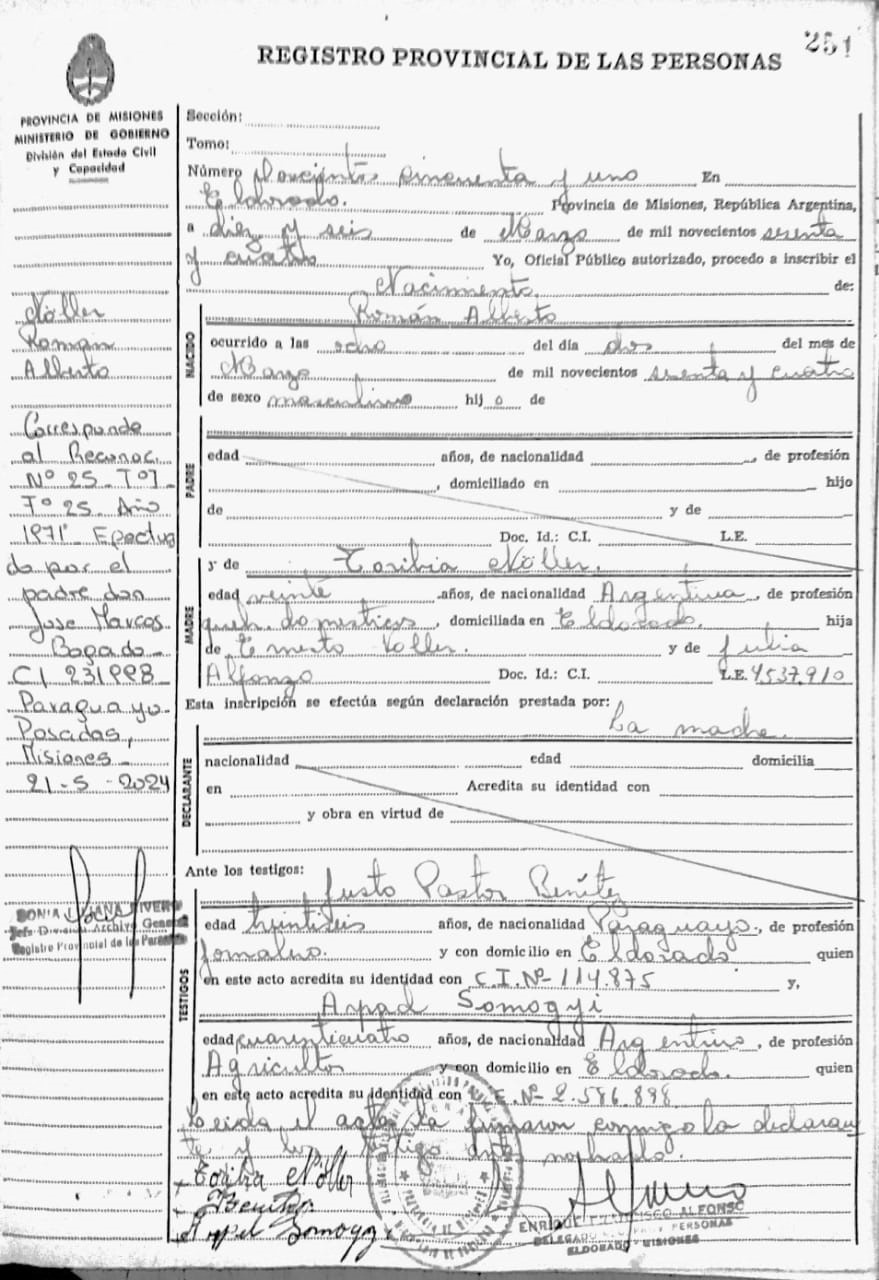 251
REGISTRO PROVINCIAL DE LAS PERSONAS
PROVINCIA DE MISIONES
MINISTERIO DE GOBIERNO
División del Estado Civil
y Capacidad
Nöller
Román
Alberto
Corresponde
al Reconoc.
Nº 25 - Tº1 -
Fº 25. Año
1971 - Efectua
do por el
padre don
Jose Marcos
Bogado -
C.I 231998 -
Paraguayo.
Posadas,
Misiones -
21-5-2024
Jefe División Archivo General
Registro Provincial de las Personas
Sección:
Tomo:
Número Doscientos cincuenta y uno En
Eldorado. Provincia de Misiones, República Argentina,
a diez y seis de Marzo de mil novecientos sesenta
y cuatro Yo, Oficial Público autorizado, procedo a inscribir el
Nacimiento de:
NACIDO
Román Alberto
ocurrido a las ocho del día dos del mes de
Marzo de mil novecientos sesenta y cuatro
de sexo masculino hij o de
PADRE
edad años, de nacionalidad , de profesión
, domiciliado en hijo
de y de
Doc. Id.: C.I. L.E.
MADRE
y de Toribia Nöller.
edad veinte años, de nacionalidad Argentina, de profesión
queh. domesticos, domiciliada en Eldorado. hija
de Ernesto Noller. y de Julia
Alfonzo Doc. Id.: C.I. L.E. 4537.910
Esta inscripción se efectúa según declaración prestada por:
La madre.
DECLARANTE
nacionalidad edad domicilia
en Acredita su identidad con
y obra en virtud de
Ante los testigos:
Justo Pastor Benítez
TESTIGOS
edad treintiseis años, de nacionalidad Paraguayo, de profesión
jornalero. y con domicilio en Eldorado quien
en este acto acredita su identidad con C.I. Nº 114.875 y,
Arpad Somogyi
edad cuarenticuatro años, de nacionalidad Argentino, de profesión
Agricultor y con domicilio en Eldorado. quien
en este acto acredita su identidad con Nº 2.586.898
Leida el acta, la firmaron conmigo la declaran
te y los testigos
Toribia Nöller
Benitez
Arpad Somogyi
ENRIQUE FRANCISCO ALFONSO
DELEGADO PERSONAS
ELDORADO MISIONES